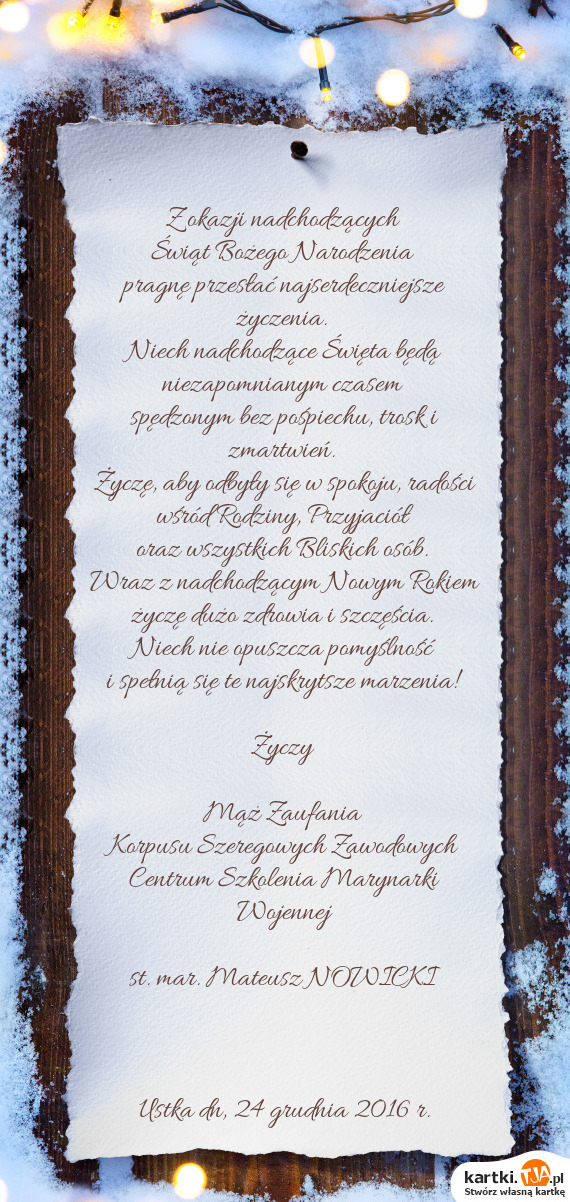 Z okazji nadchodzących
Świąt Bożego Narodzenia
pragnę przesłać najserdeczniejsze
życzenia.
Niech nadchodzące Święta będą
niezapomnianym czasem
spędzonym bez pośpiechu, trosk i
zmartwień.
Życzę, aby odbyły się w spokoju, radości
wśród Rodziny, Przyjaciół
oraz wszystkich Bliskich osób.
Wraz z nadchodzącym Nowym Rokiem
życzę dużo zdrowia i szczęścia.
Niech nie opuszcza pomyślność
i spełnią się te najskrytsze marzenia!
Życzy
Mąż Zaufania
Korpusu Szeregowych Zawodowych
Centrum Szkolenia Marynarki
Wojennej
st. mar. Mateusz NOWICKI
Ustka dn, 24 grudnia 2016 r.
kartki.TJA.pl
Stwórz własną kartkę